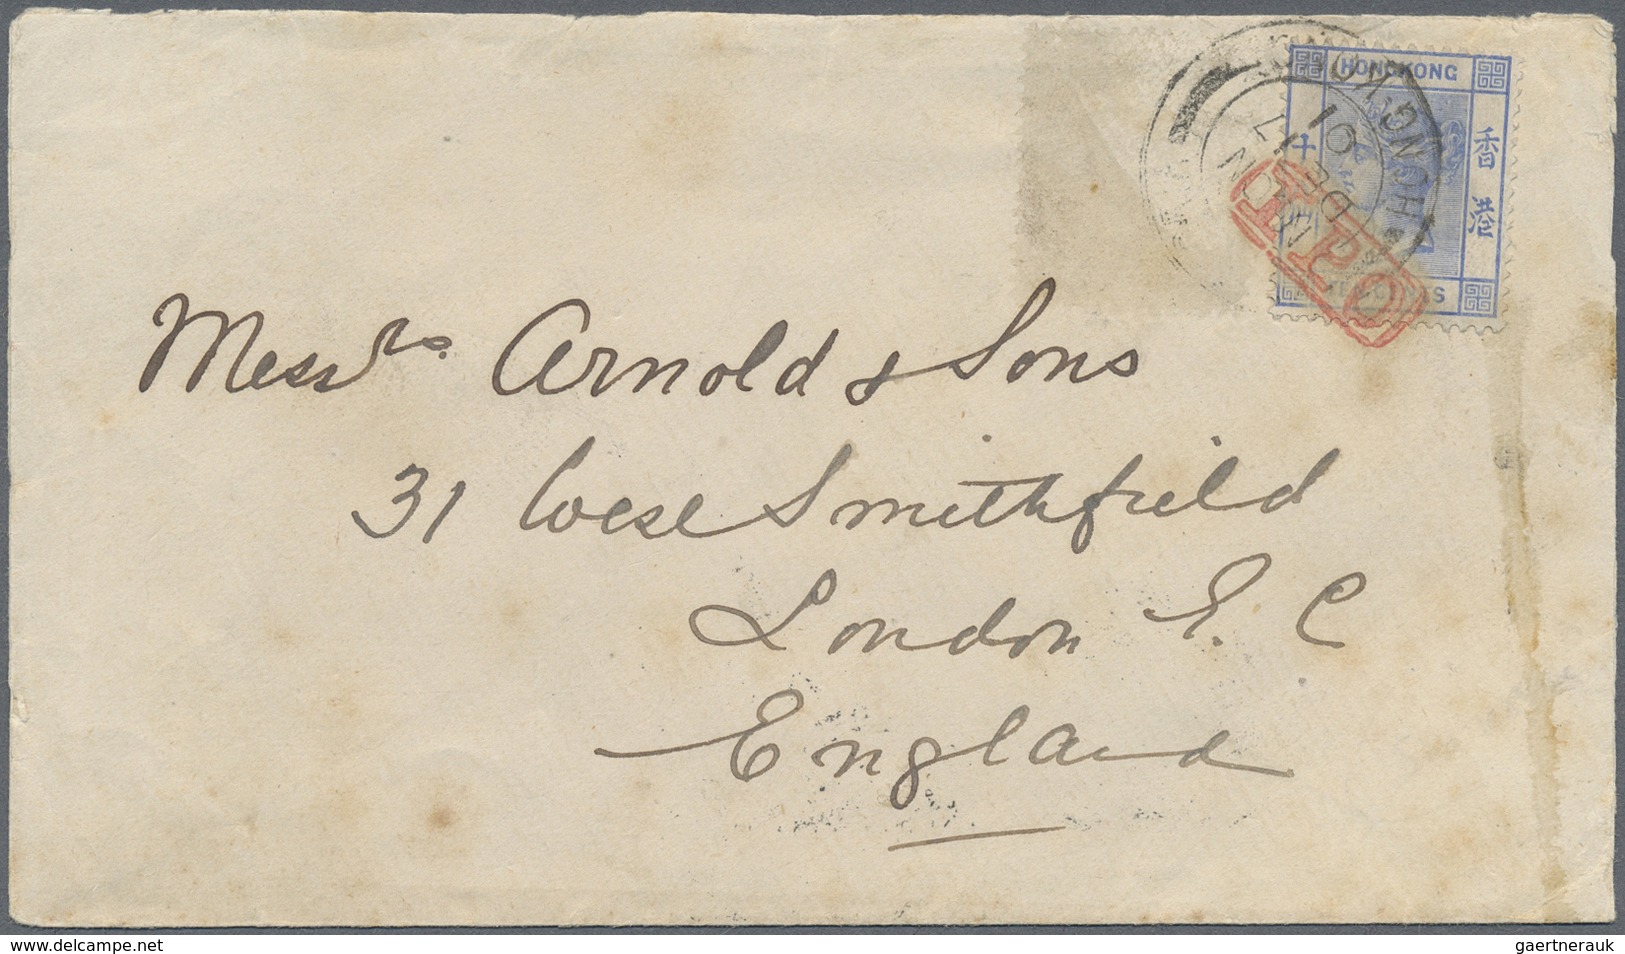 HONGKONG
香港
HONG KONG
DE 17
01
I.P.O
Messrs. Arnold & Sons
31 West Smithfield
London E. C
England
www.delcampe.net
gaertnerauk